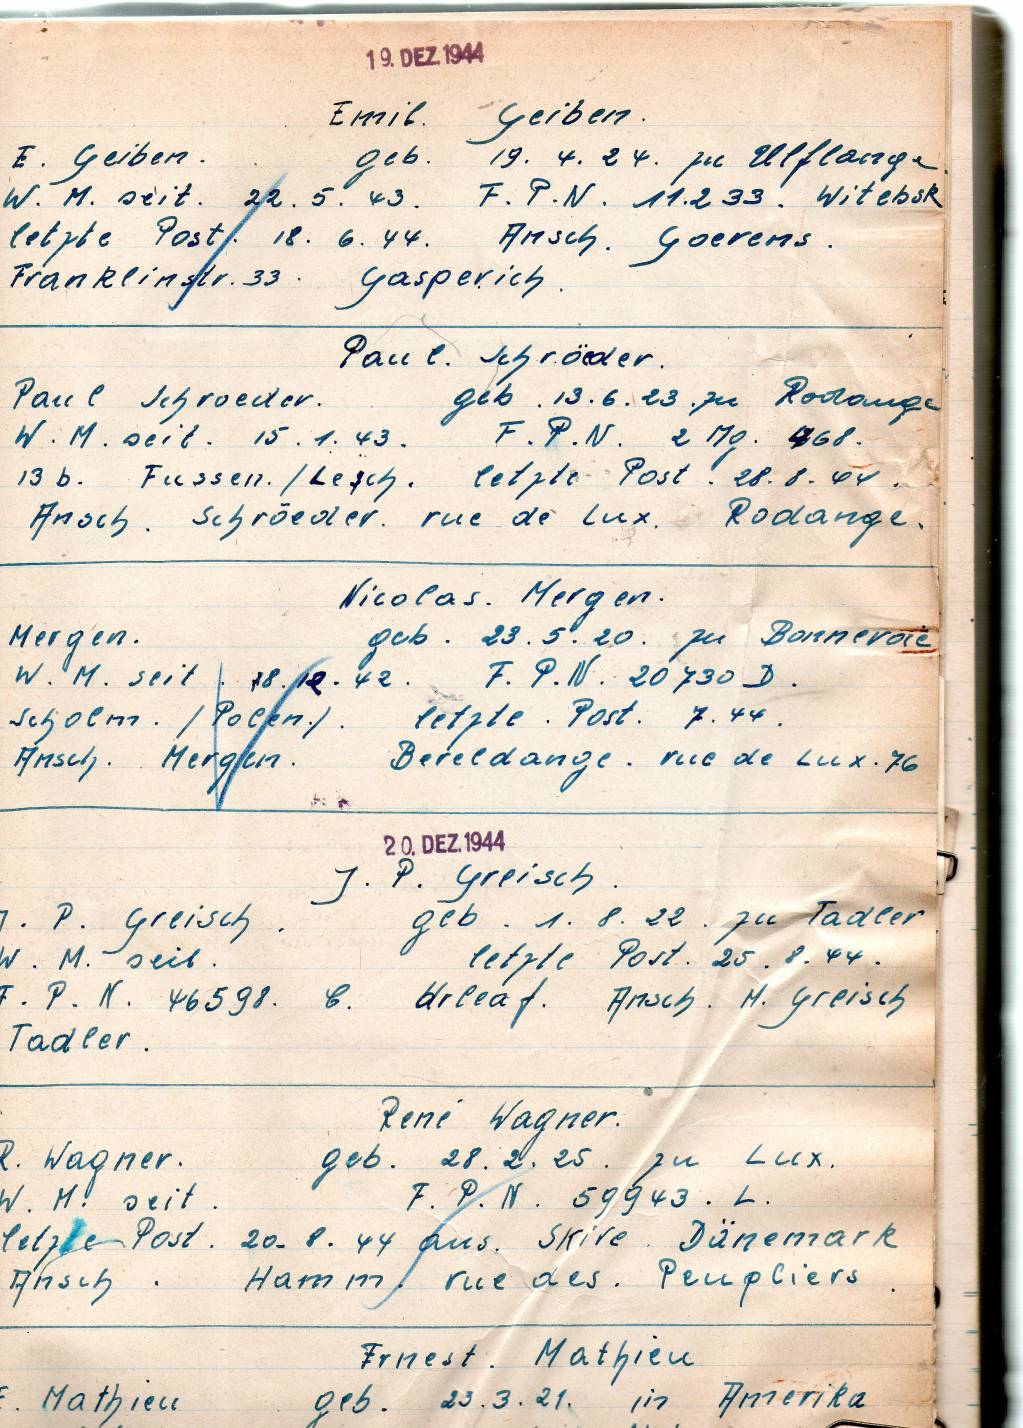 19. DEZ. 1944
Emil. Geiben.
E. Geiben. geb. 19. 4. 24. zu Ulflange.
W. M. seit. 22. 5. 43. F. P. N. 11.233. Witebsk
letzte Post. 18. 6. 44. Ansch. Goerens.
Franklinstr. 33. Gasperich.
Paul. Schröder.
Paul Schroeder. geb. 13. 6. 23. zu Rodange
W. M. seit. 15. 1. 43. F. P. N. 2 Mg. 468.
13 b. Fussen. / Lesch. letzte Post. 28. 8. 44.
Ansch. Schröeder. rue de Lux. Rodange.
Nicolas. Mergen.
Mergen. geb. 23. 5. 20. zu Bonnevoie
W. M. seit. 18. 12. 42. F. P. N. 20730 D.
Scholm. / Polen. /. letzte. Post. 7. 44.
Ansch. Mergen. Bereldange. rue de Lux. 76
20. DEZ. 1944
J. P. Greisch.
J. P. Greisch. geb. 1. 8. 22. zu Tadler
W. M. seit. letzte Post. 25. 8. 44.
F. P. N. 46598. C. Ansch. M. Greisch
Tadler.
René Wagner.
R. Wagner. geb. 28. 2. 25. zu Lux.
W. M. seit. F. P. N. 59943. L.
letzte Post. 20. 8. 44 aus. Skive Dänemark
Ansch. Hamm. rue des. Peupliers.
Ernest. Mathieu
E. Mathieu geb. 23. 3. 21. in Amerika